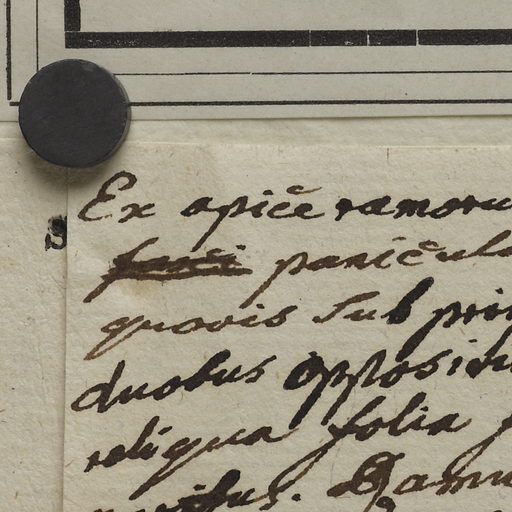 Ex apice ramoru
panicula
quovis sub pri
duobus opposi
reliqua folia f
Ramu